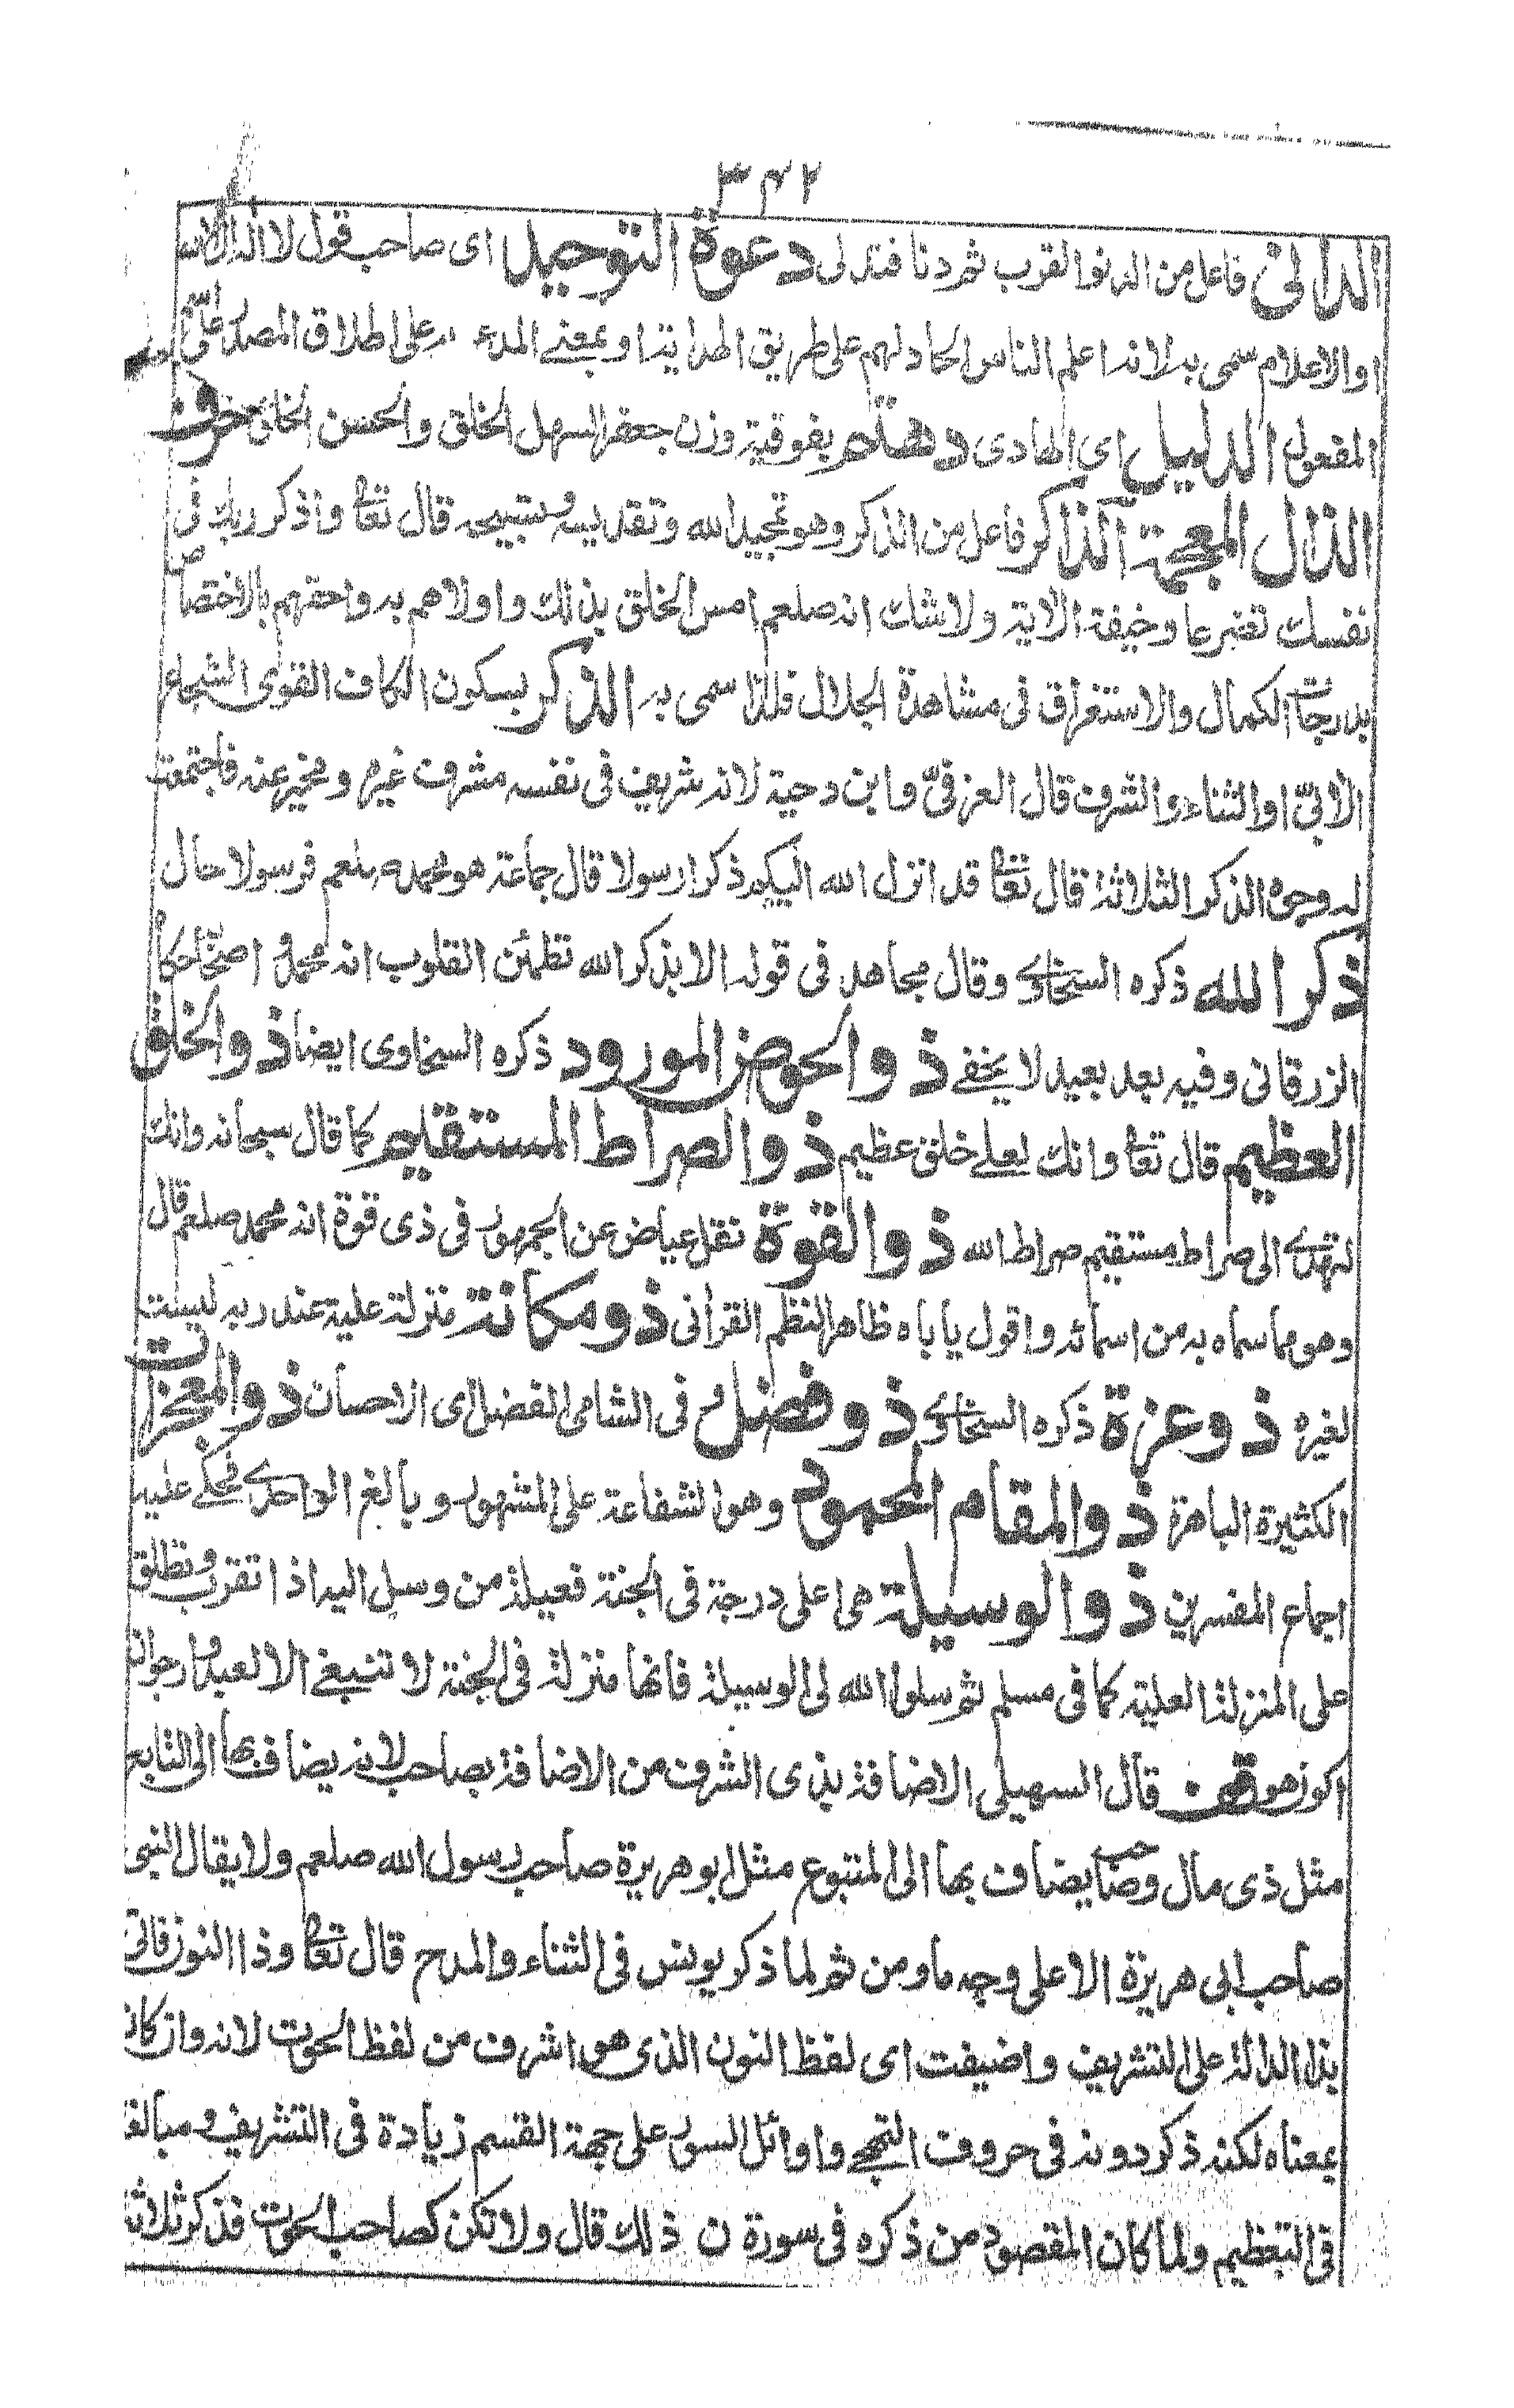 ٣٤٢
الدانى فاعل من الدنو القرب ثم دنا فتدلى دعوة التوحيد اى صاحب قول لا اله الا الله
او الاعلام سمى به لانه اعلم الناس الحا دلهم على طريق الهداية او بمعنى المدعو به على اطلاق المصدر على
المفعول الدليل اى الهادى دهثم بفوقية وزن جعفر السهل الخلق والحسن الخلق حرف
الذال المعجمة الذاكر فاعل من الذكر وهو تمجيد الله وتقديسه وتسبيحه قال تعالى واذكر ربك فى
نفسك تضرعا وخيفة الاية ولا شك انه صلعم امس الخلق بذلك واولاهم به واحقهم بالاختصاص
بدرجات الكمال والاستغراق فى مشاهدة الجلال فلذا سمى به الذكر بسكون الكاف القوى الشجاع
الابىّ او الثناء والشرف قال العزفىّ وابن دحية لانه شريف فى نفسه مشرف غيره ومخبر عنه فاجتمعت
له وجوه الذكر الثلاثة قال تعالى قد انزل الله اليكم ذكرا رسولا قال جماعة هو محمد صلعم فرسولا حال
ذكر الله ذكره السخاوى وقال مجاهد فى قوله الا بذكر الله تطمئن القلوب انه محمد واصحابه حكاه
الزرقانى وفيه بعد بعيد لا يخفى ذو الحوض المورود ذكره السخاوى ايضا ذو الخلق
العظيم قال تعالى وانك لعلى خلق عظيم ذو الصراط المستقيم كما قال سبحانه وانك
لتهدى الى صراط مستقيم صراط الله ذو القوة نقل عياض عن الجمهور فى ذى قوة انه محمد صلعم قال
وهو مما سماه به من اسمائه واقول ياباه ظاهر النظم القرانى ذو مكانة منزلة علية عند ربه ليست
لغيره ذو عزة ذكره السخاوى ذو فضل وفى الشامى الفضل اى الاحسان ذو المعجزات
الكثيرة الباهرة ذو المقام المحمود وهو الشفاعة على المشهور وبالغ الواحدى فحكى عليه
اجماع المفسرين ذو الوسيلة هى اعلى درجة فى الجنة فعيلة من وسل اليه اذا تقرب وتطلق
على المنزلة العلية كما فى مسلم ثم سلوا الله لى الوسيلة فانها منزلة فى الجنة لا تنبغى الا لعبد وارجو ان
اكون هو قال السهيلى الاضافة بذى اشرف من الاضافة بصاحب لانه يضاف بها الى التابع
مثل ذى مال وصاحب يضاف بها الى المتبوع مثل ابو هريرة صاحب رسول الله صلعم ولا يقال النبى
صاحب ابى هريرة الا على وجه ما ومن ثم لما ذكر يونس فى الثناء والمدح قال تعالى وذا النون فاتى
بذا الدالة على التشريف واضيفت اى لفظ النون الذى هو اشرف من لفظ الحوت لانه وان كان
بمعناه لكنه ذكر دونه فى حروف التهجى واوائل السور على جهة القسم زيادة فى التشريف ومبالغة
فى التعظيم ولما كان المقصود من ذكره فى سورة ن ذلك قال ولا تكن كصاحب الحوت فذكر ثلاثة